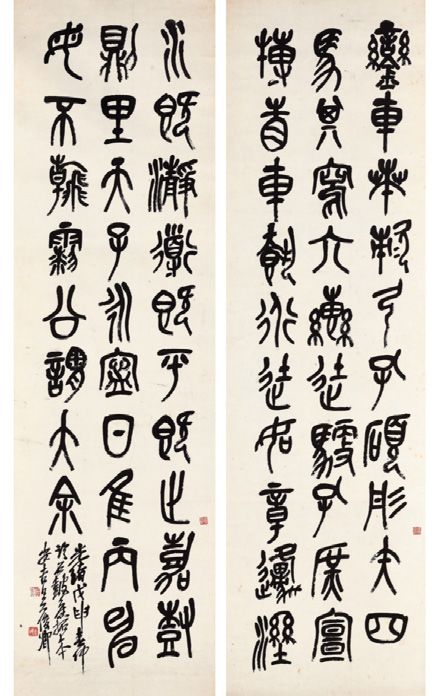 鑾車𠦪敕弓孔碩彤矢四
馬其寫六轡徒馭孔庶宣
搏眚車載行徒如章邍溼
水既瀞衟既平既止嘉樹
則里天子永寧日隹丙申
毋不公謂大余
光緒戊申
石鼓舊拓本
安吉吳俊卿